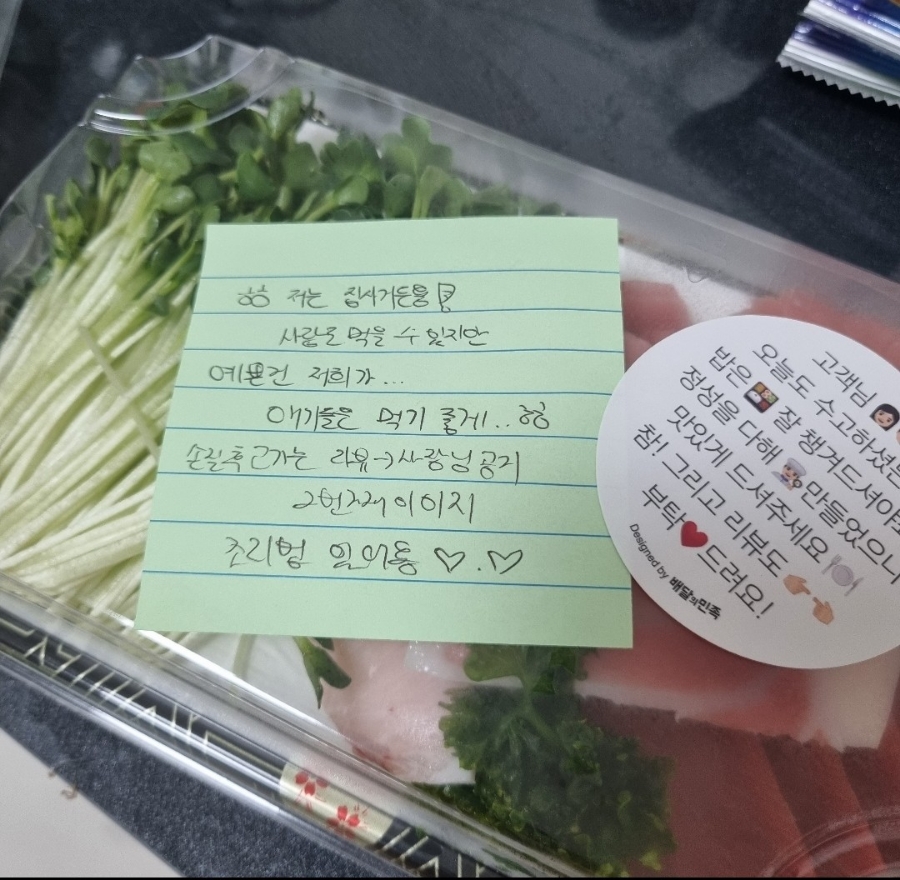 저는
사람도 먹을 수 있지만
저희가...
애기들은 먹기 좋게..
손질후 리뷰→사장님공지
2번째 이미지
조리법 읽어용♡.♡
고객님
오늘도 수고하셨는
밥은 🍱 잘 챙겨드셔야
정성을 다해 👨‍🍳 만들었으니
맛있게 드셔주세요 🍽️
참! 그리고 리뷰도 👉👈
부탁❤️드려요!
Designed by 배달의민족